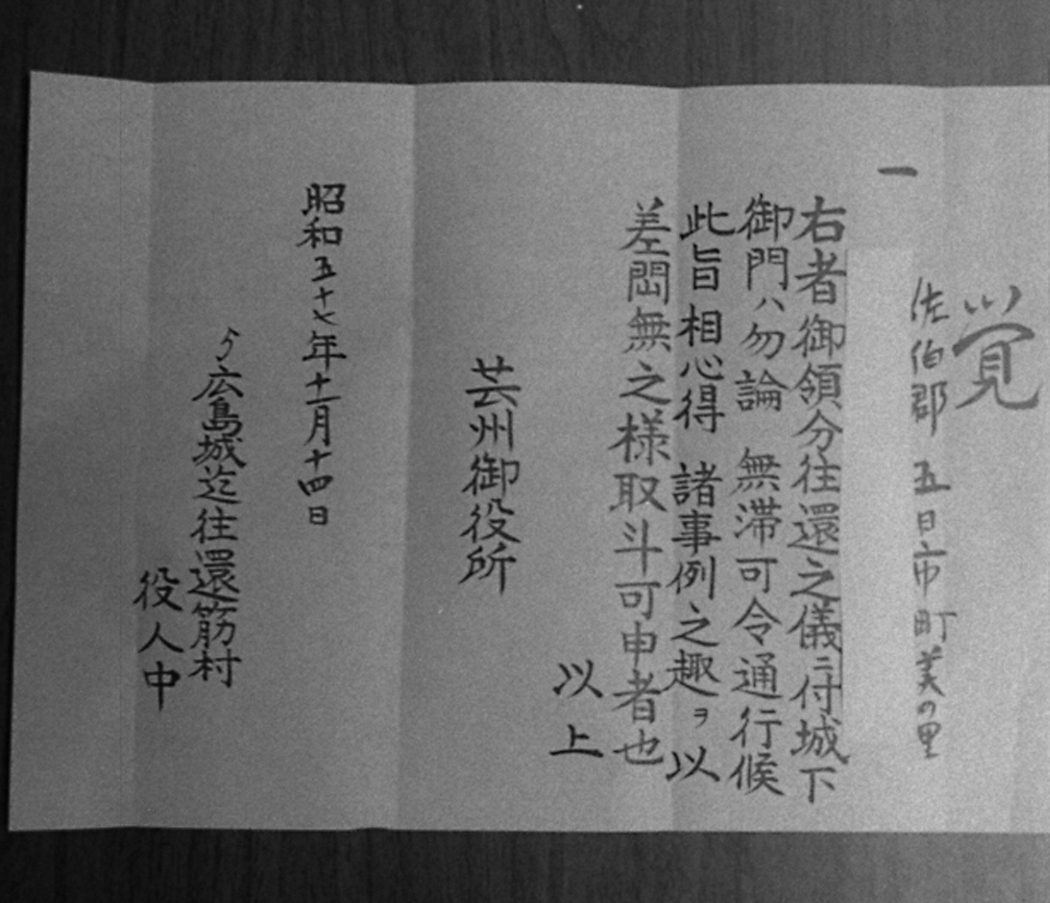 覚
佐伯郡 五日市町美の里
一
右者御領分往還之儀ニ付城下
御門ハ勿論 無滞可令通行候
此旨相心得 諸事例之趣ヲ以
差閊無之様取斗可申者也
以上
芸州御役所
昭和五十七年十一月十四日
ゟ広島城迄往還筋村
役人中